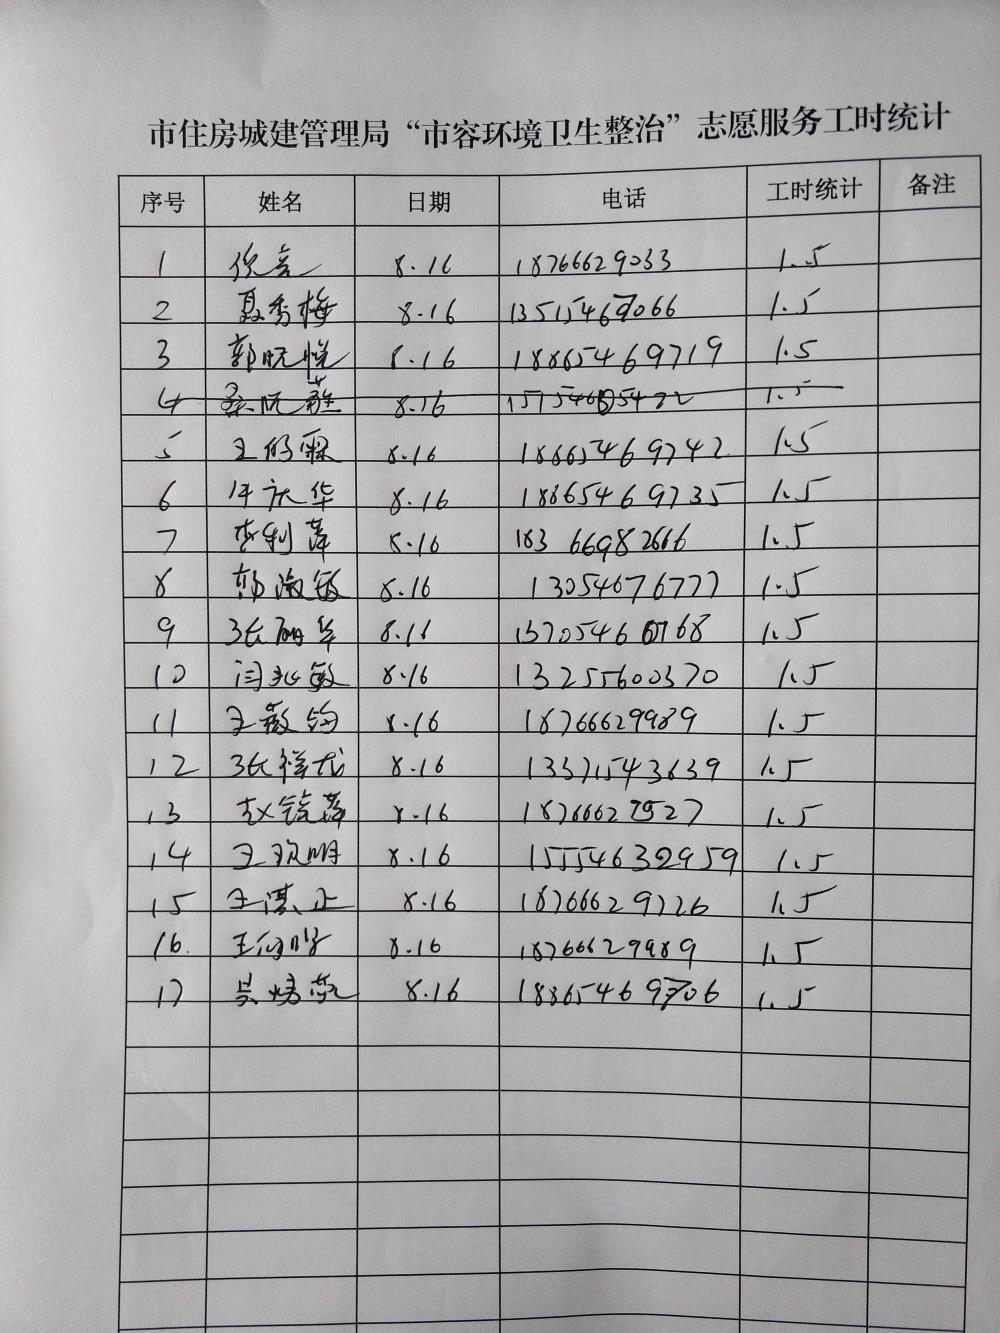 市住房城建管理局“市容环境卫生整治”志愿服务工时统计
序号 姓名 日期 电话 工时统计 备注
1 8.16 18766629033 1.5
2 聂秀梅 8.16 1.5
3 郭晓悦 8.16 18865469719 1.5
4 8.16 1.5
5 8.16 18865469742 1.5
6 华 8.16 18865469735 1.5
7 李利萍 8.16 18366982666 1.5
8 韩淑敏 8.16 13054676777 1.5
9 张丽华 8.16 1.5
10 闫 敏 8.16 13255600370 1.5
11 王 8.16 18766629989 1.5
12 张祥龙 8.16 1.5
13 赵锐萍 8.16 1.5
14 王 明 8.16 1.5
15 王 正 8.16 18766629726 1.5
16. 王 8.16 18766629989 1.5
17 吴 8.16 18865469706 1.5